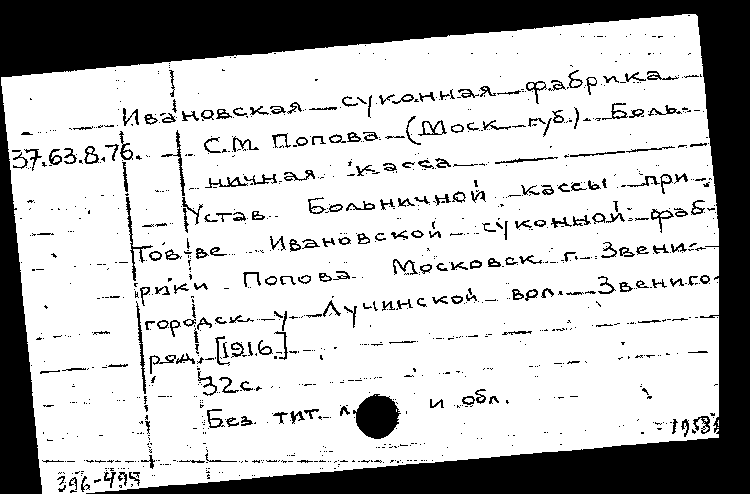 Ивановская суконная фабрика
С.М. Попова (Моск. губ.). Боль-
37.63.8.76.
ничная касса
Устав Больничной кассы при
Тов-ве Ивановской суконной фаб-
рики Попова Московск. г. Звени-
городск. у. Лучинской вол. Звениго-
род, [1916.]
32с.
Без тит. л. и обл.
396-495